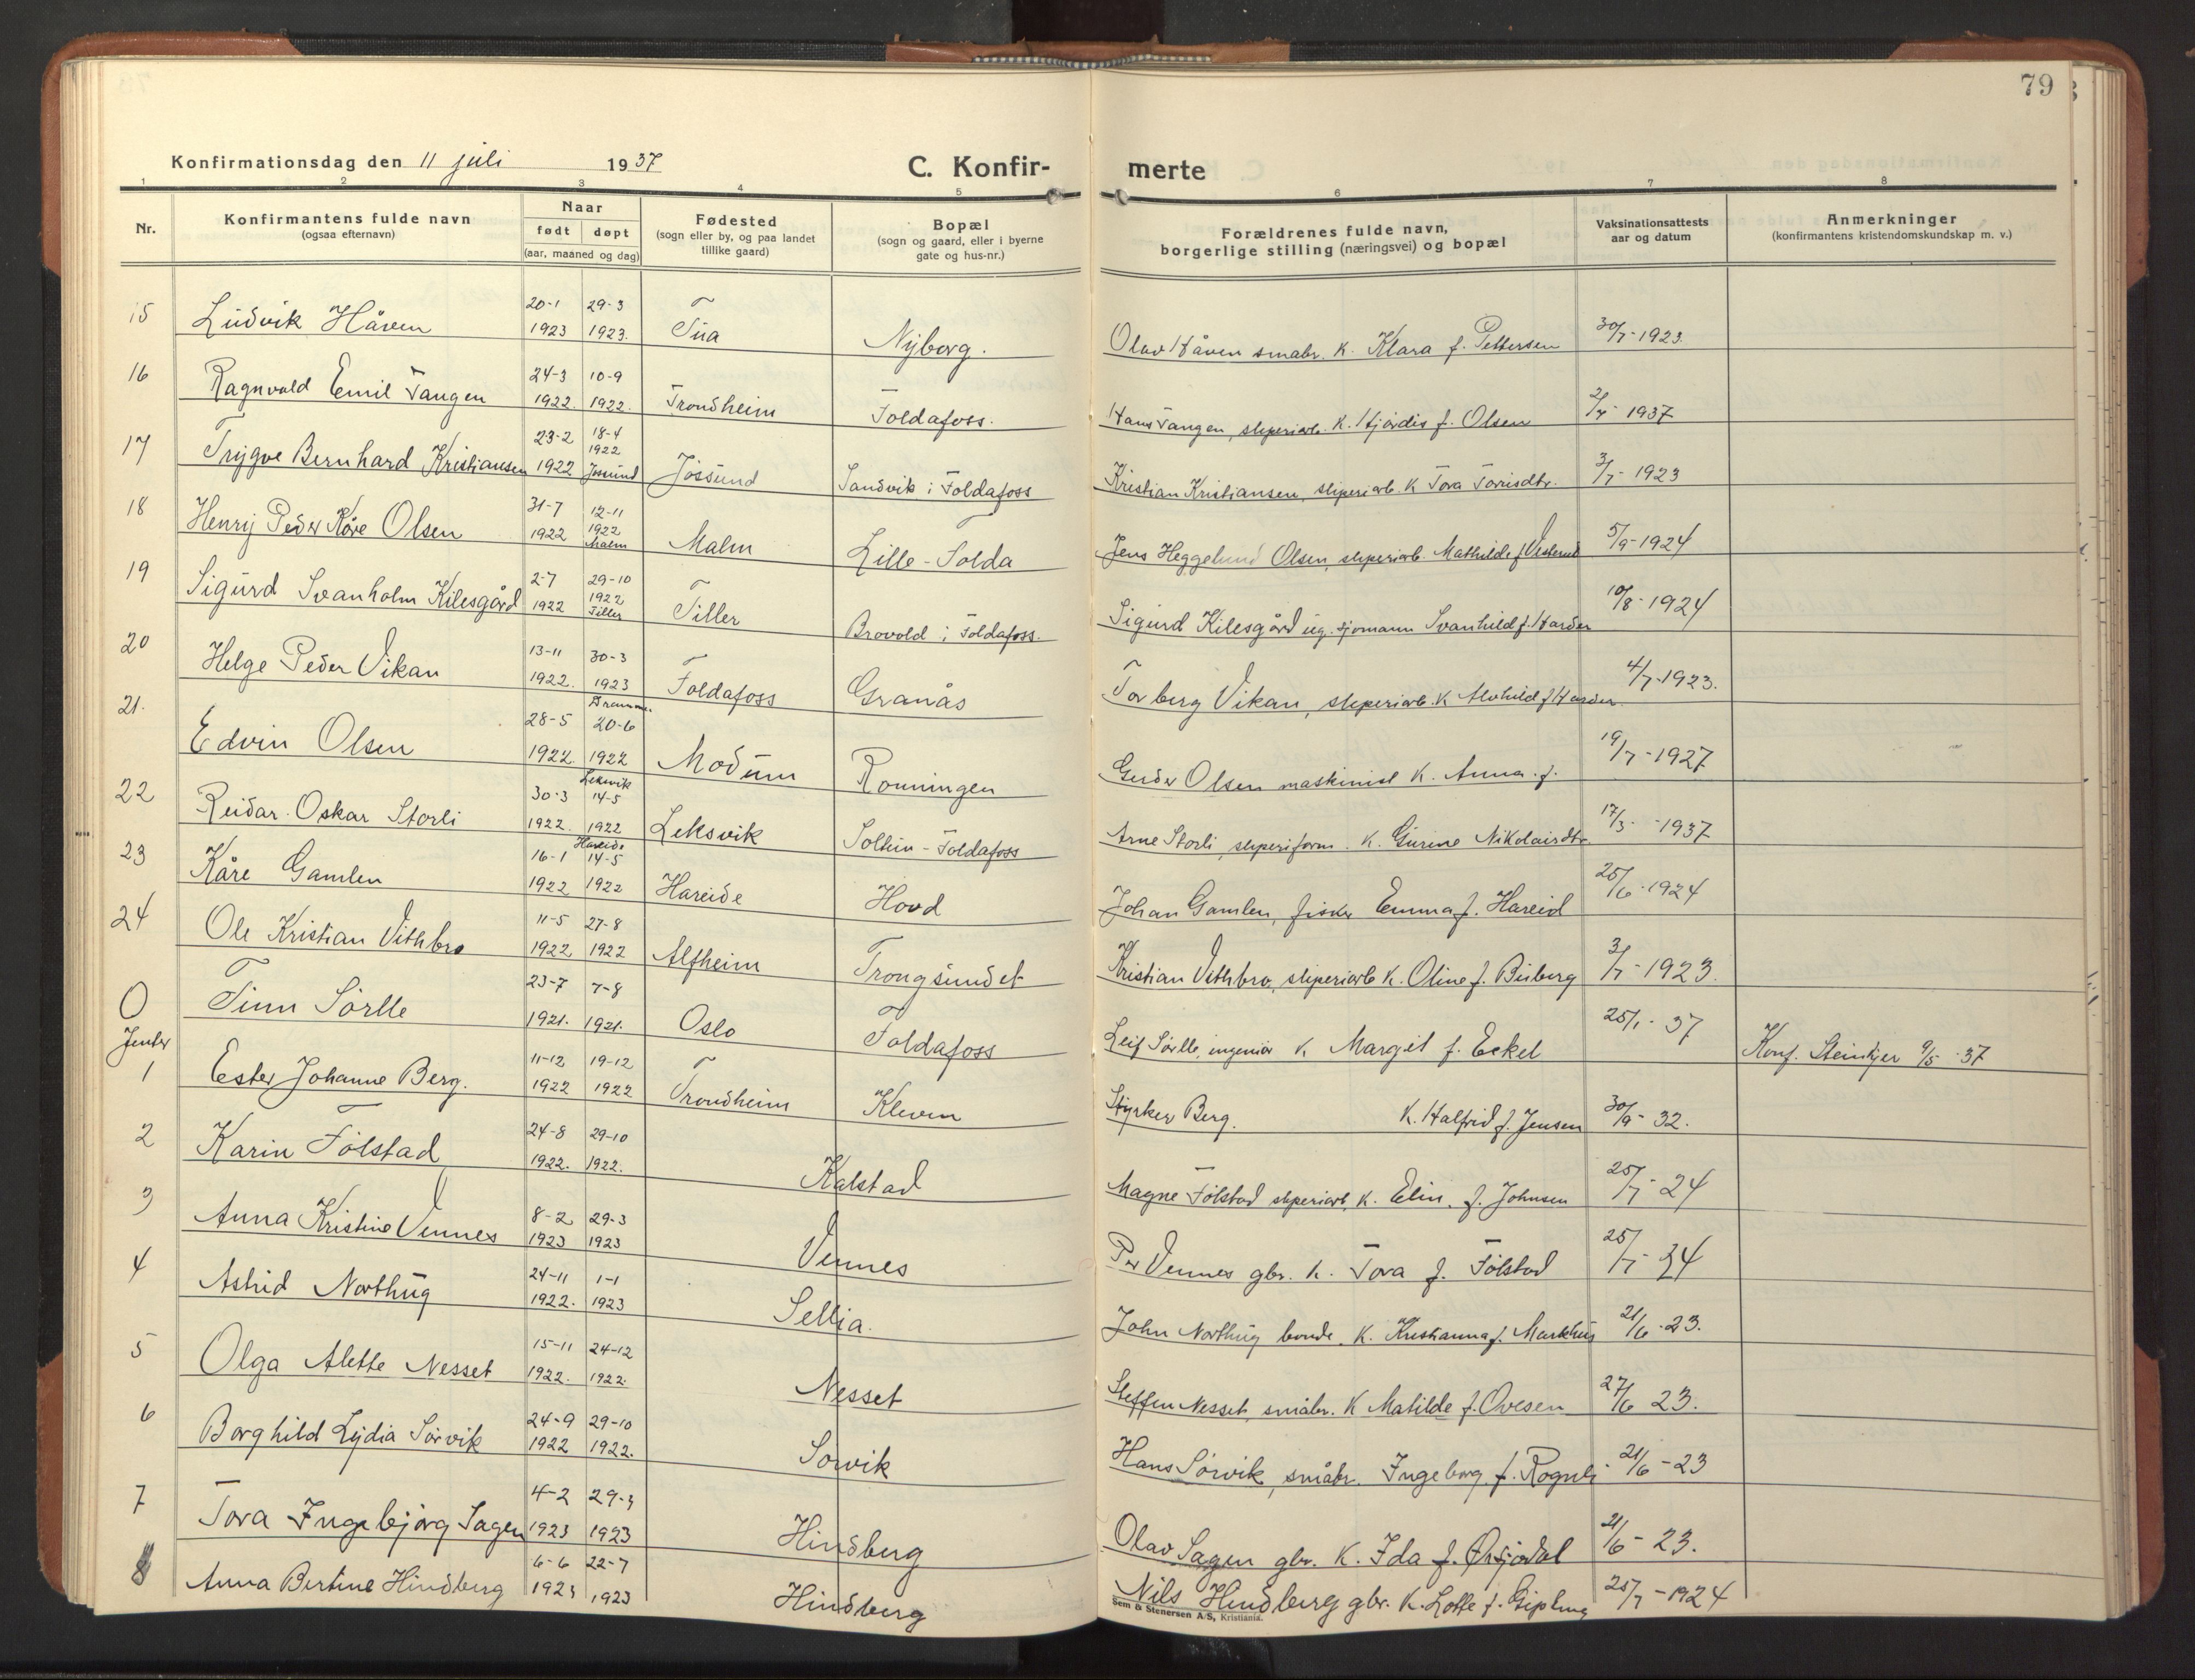 79
Konfirmationsdag den 11 juli 1937
C. Konfir- merte
1 2 3 4 5 6 7 8
Nr.
Konfirmantens fulde navn
(ogsaa efternavn)
Naar
født døpt
(aar, maaned og dag)
Fødested
(sogn eller by, og paa landet
tillike gaard)
Bopæl
(sogn og gaard, eller i byerne
gate og hus-nr.)
Forældrenes fulde navn,
borgerlige stilling (næringsvei) og bopæl
Vaksinationsattests
aar og datum
Anmerkninger
(konfirmantens kristendomskundskap m. v.)
15 Ludvik Håven 20-1 1923 29-3 1923. Tua Nyborg. Olav Håven småbr. K. Klara f. Pettersen 30/7-1923.
16 Ragnvald Emil Tangen 24-3 1922. 10-9 1922. Trondheim Foldafoss. Hans Tangen, sliperiarb. K. Hjördis f. Olsen 1937
17 Trygve Bernhard Kristiansen 23-2 1922 18-4 1922 Jössund Jössund Sandvik i Foldafoss Kristian Kristiansen, sliperiarb. K Tora Torrisdtr. 3/7-1923
18 Henry Peder Kåre Olsen 31-7 1922 12-11 1922 Malm Malm Lille-Folda Jens Heggelund Olsen, sliperiarb. Mathilde f. 5/9-1924
19 Sigurd Svanholm Kilesgård 2-7 1922 29-10 1922 Tiller Tiller Brovold i Foldafoss. Sigurd Kilesgård ug. sjömann Svanhild f. Harder 10/8-1924
20 Helge Peder Vikan 13-11 1922. 30-3 1923 Foldafoss Granås Torberg Vikan, sliperiarb. K Alvhild f Harder 4/7-1923.
21. Edvin Olsen 28-5 1922. Drammen 20-6 1922 Modum Rönningen Olsen maskinist K. Anna f. 19/7-1927
22 Reidar Oskar Storli 30-3 1922. Leksvik 14-5 1922 Leksvik Solhein-Foldafoss Arne Storli, sliperiform. K. Gurine Nikolaisdtr. 17/3-1937
23 Kåre Gamlen 16-1 1922 Hareide 14-5 1922 Hareide Hovd Johan Gamlen, fisker Emma f. Hareid 25/6-1924
24 Ole Kristian Vithbro 11-5 1922 27-8 1922 Alfheim Trongsundet Kristian Vithbro, sliperiarb K. Oline f. Biberg 3/7-1923.
0 Finn Sörlle 23-7 1921. 7-8 1921. Oslo Foldafoss Leif Sörlle, ingeniör K Margit f. Eckel 25/1-37 Konf. Steinkjer 9/5-37
Jenter
1 Ester Johanne Berg. 11-12 1922 19-12 1922 Trondheim Kleven Styrker Berg. K. Halfrid f. Jensen 30/9-32.
2 Karin Fölstad 24-8 1922. 29-10 1922. Kalstad Magne Fölstad sliperiarb. K. Elin f. Johnsen 25/7-24
3 Anna Kristine Vennes 8-2 1923 29-3 1923 Vennes Per Vennes gbr. K. Tora f. Fölstad 25/7-24
4 Astrid Northug 24-11 1922. 1-1 1923 Sellia. John Northug bonde. K. Kristianna f. Markhus 21/6-23.
5 Olga Alette Nesset 15-11 1922. 24-12 1922. Nesset Steffen Nesset, småbr. K Matilde f. Ovesen 27/6 23.
6 Borghild Lydia Sörvik 24-9 1922 29-10 1922. Sörvik Hans Sörvik, småbr. Ingeborg f. Rognli 21/6-23
7 Tora Ingebjörg Sagen 4-2 1923 29-3 1923 Hindberg Olav Sagen gbr. K. Ida f. 21/6-23.
8 Anna Bertine Hindberg 6-6 1923 22-7 1923 Hindberg Nils Hindberg gbr. K. Lotte f. Gipling 25/7-1924
Sem & Stenersen A/S, Kristiania.